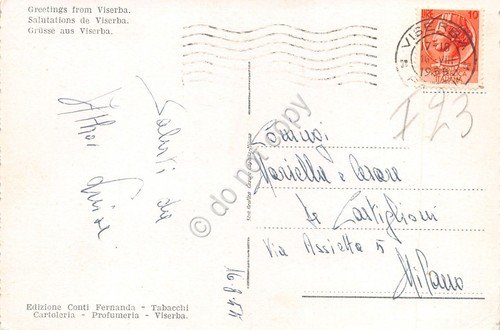 Greetings from Viserba.
Salutations de Viserba.
Grüsse aus Viserba.
Saluti da
VISERBA
10
I 23
Mariella e Cesare
de Castiglioni
Via Assietta 5
Milano
16-8-
do not copy
Edizione Conti Fernanda - Tabacchi
Cartoleria - Profumeria - Viserba.